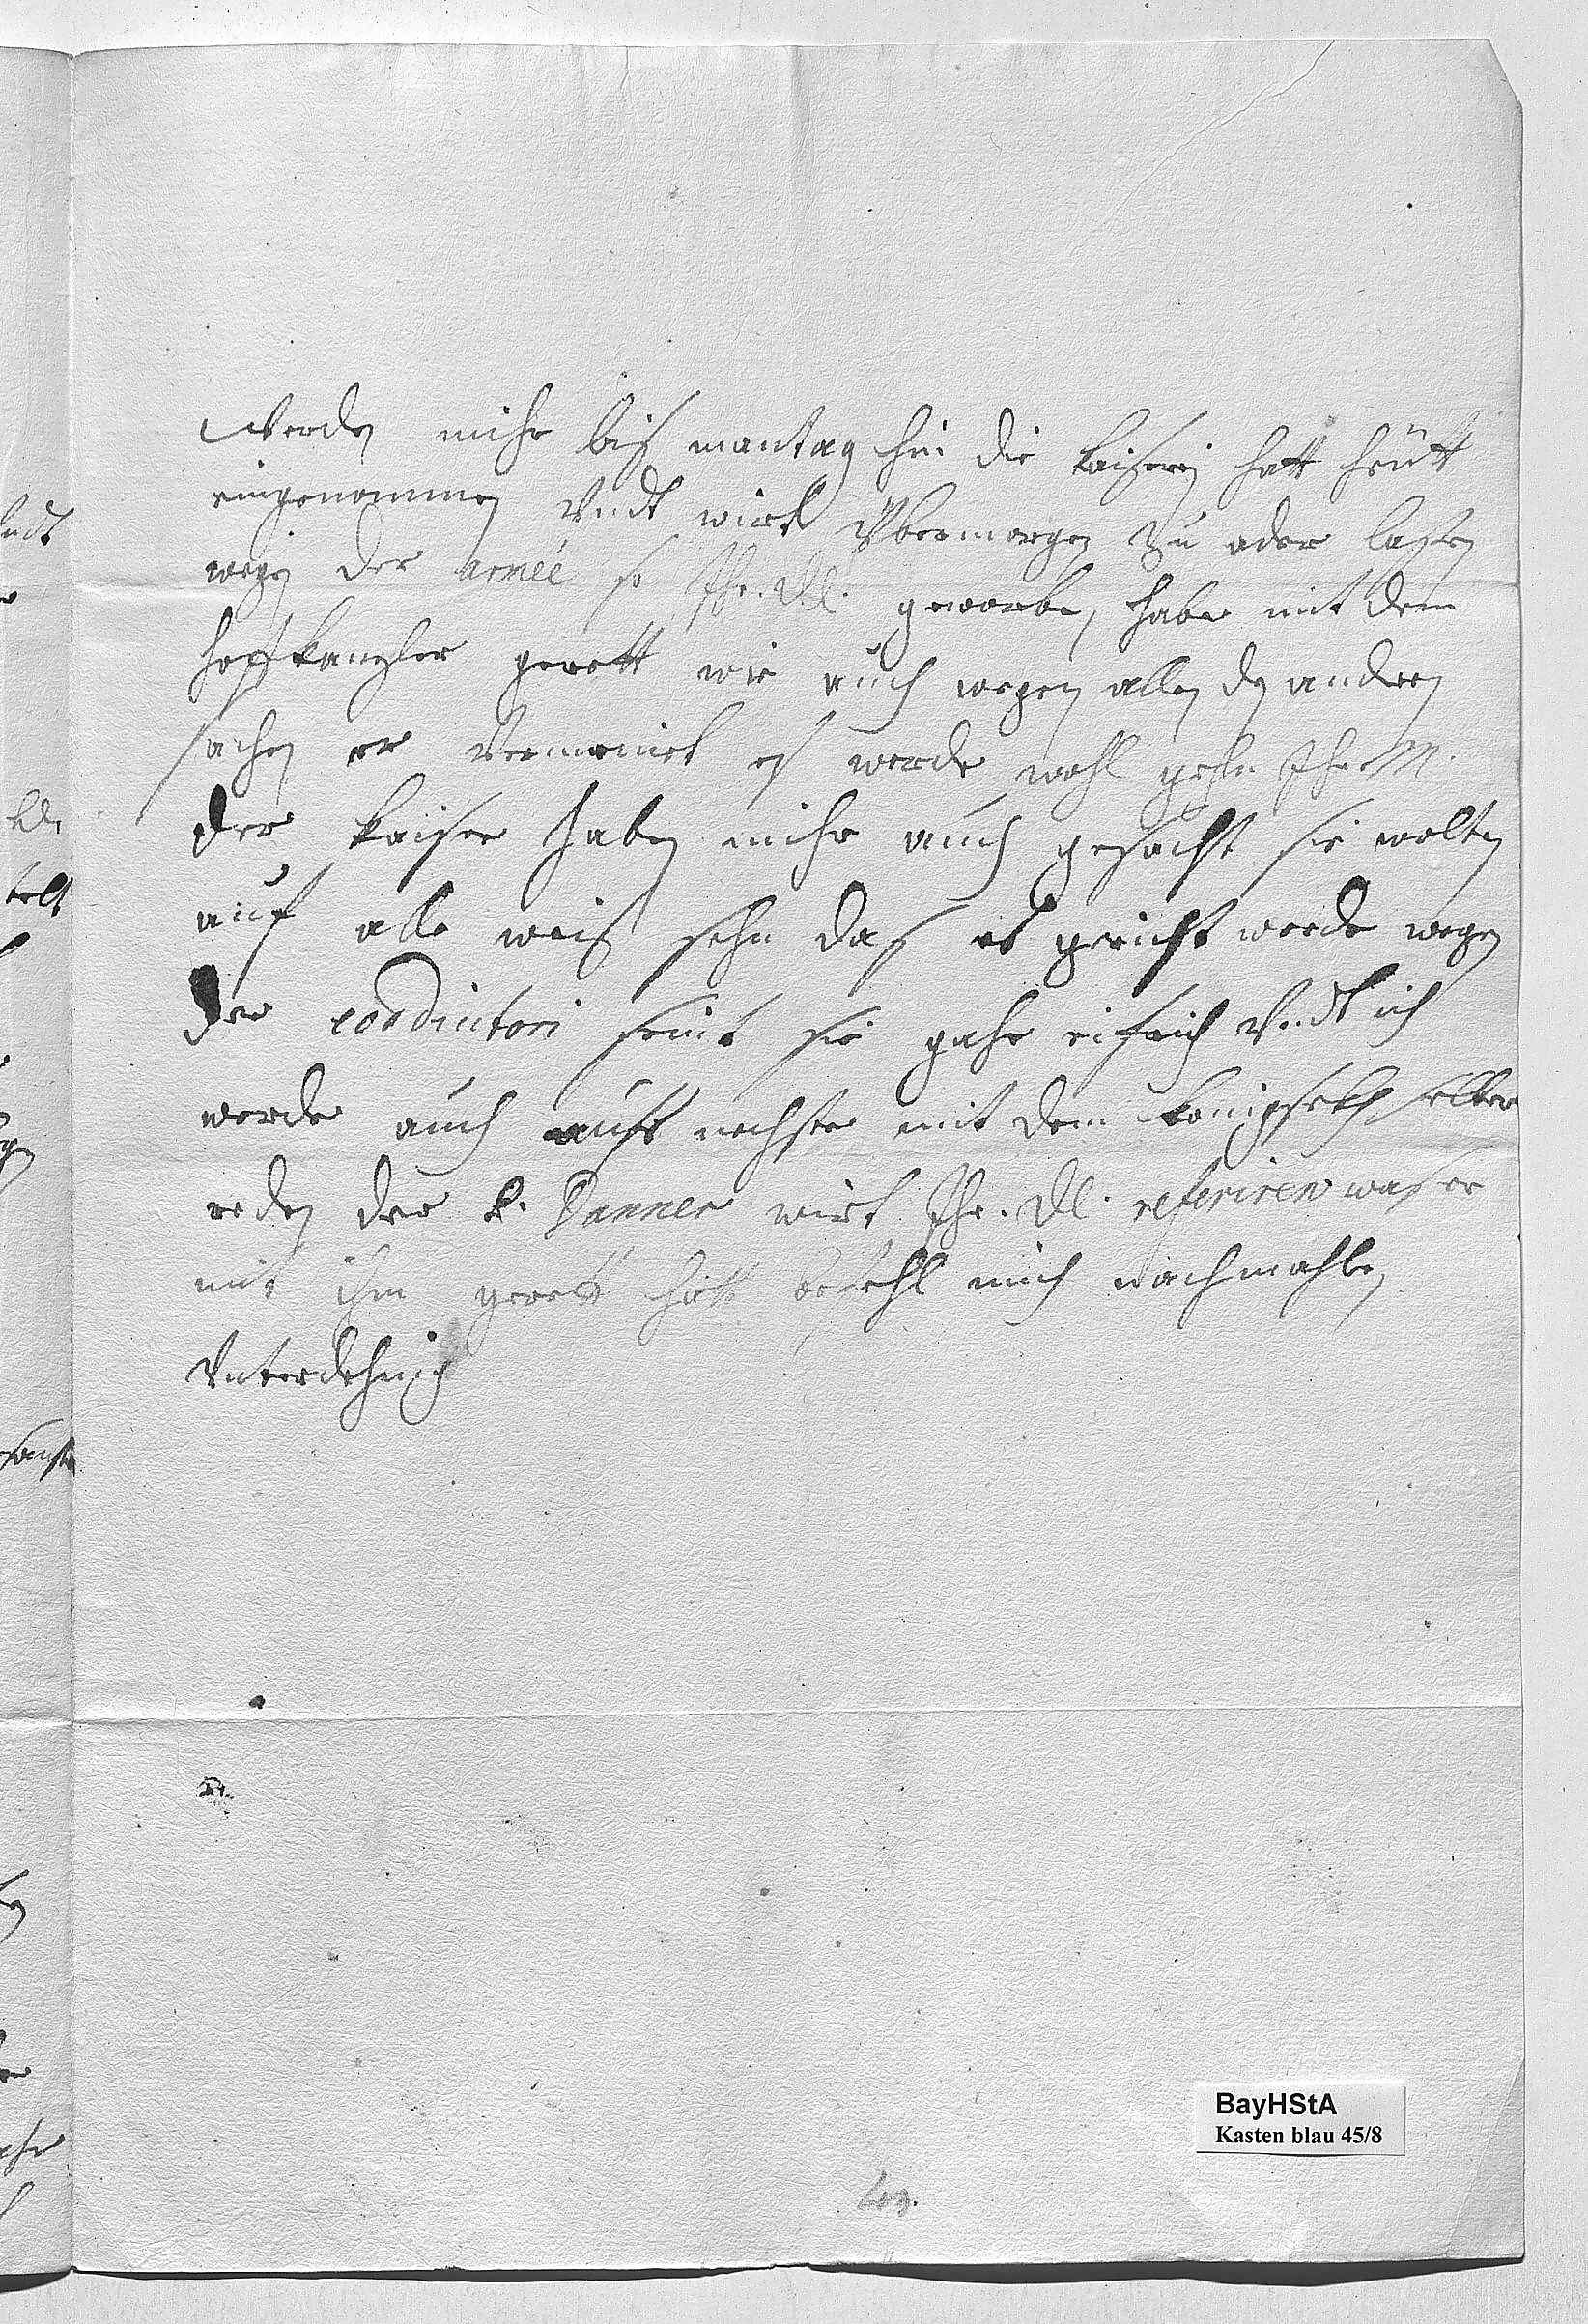 werden mihr bis mantag hin die kaiserin hatt heütt
eingenommen vndt wirt vbermorgen zu ader lasen
wegen der armée so Ihr. Dl. geworben, habe mit dem
hoffkanzler gerett wie auch wegen allen den andern
sachen er vermeint es werde wohl gehn Ihr M.
der kaiser haben mihr auch gesacht sie wolten
auf alle weis sehn das es gericht werde wegen
der coadiutori seint sie gahr eifrich vndt ich
werde auch aufs nechste mit dem königseck selber
reden der P. Danner wirt Ihr. Dl. referiren was er
mit ihm gerett hatt befehl mich nachmahlen
vnterdehnich
BayHStA
Kasten blau 45/8